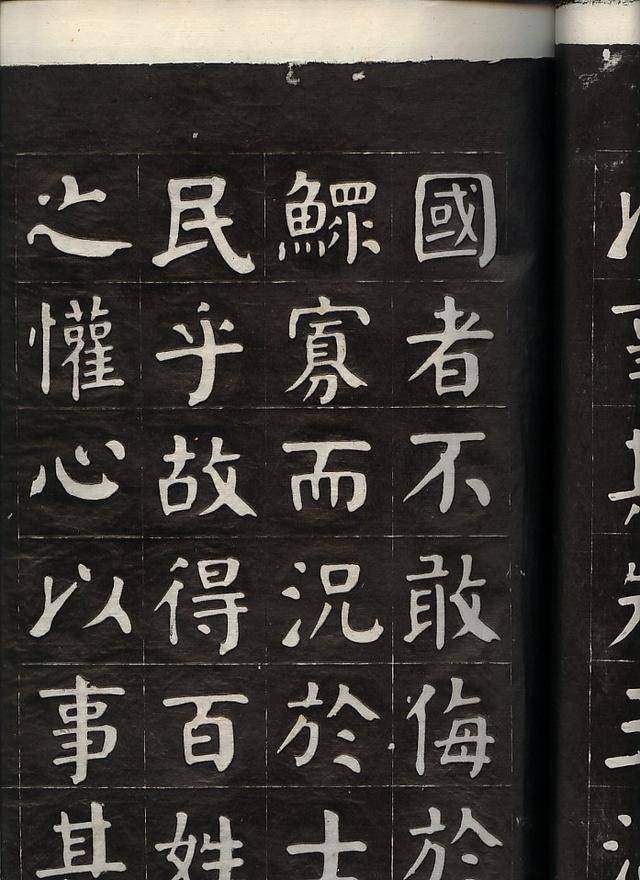 國者不敢侮於
鰥寡而況於士
民乎故得百姓
之懽心以事其